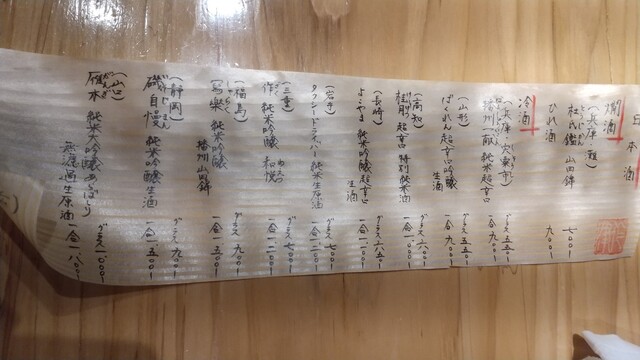 日本酒
燗酒
(兵庫・灘)
桂鑑 山田錦 七〇〇ー
ひれ酒 九〇〇ー
冷酒
(兵庫・宍粟市)
播州一献 純米超辛口 グラス 五五〇ー
一合 九〇〇ー
(山形)
ばくれん超辛口吟醸 生酒 一合 九〇〇ー
(高知)
桂月 超辛口 特別純米酒 グラス 六〇〇ー
一合 一〇〇〇ー
(長崎)
よこやま 純米吟醸超辛口 生酒 グラス 六五〇ー
(岩手)
タクシードライバー 純米生原酒 グラス 七〇〇ー
一合 一二〇〇ー
(三重)
作 純米吟醸 和悦 一合 一〇〇〇ー
(福島)
しゃらく
写楽 純米吟醸 播州山田錦 グラス 九〇〇ー
一合 一五〇〇ー
(静岡)
磯自慢 純米吟醸生酒 グラス 九〇〇ー
一合 一五〇〇ー
(山口)
がんぎ
雁木 純米大吟醸あらばしり 無濾過生原酒 グラス 一〇〇〇ー
一合 一八〇〇ー